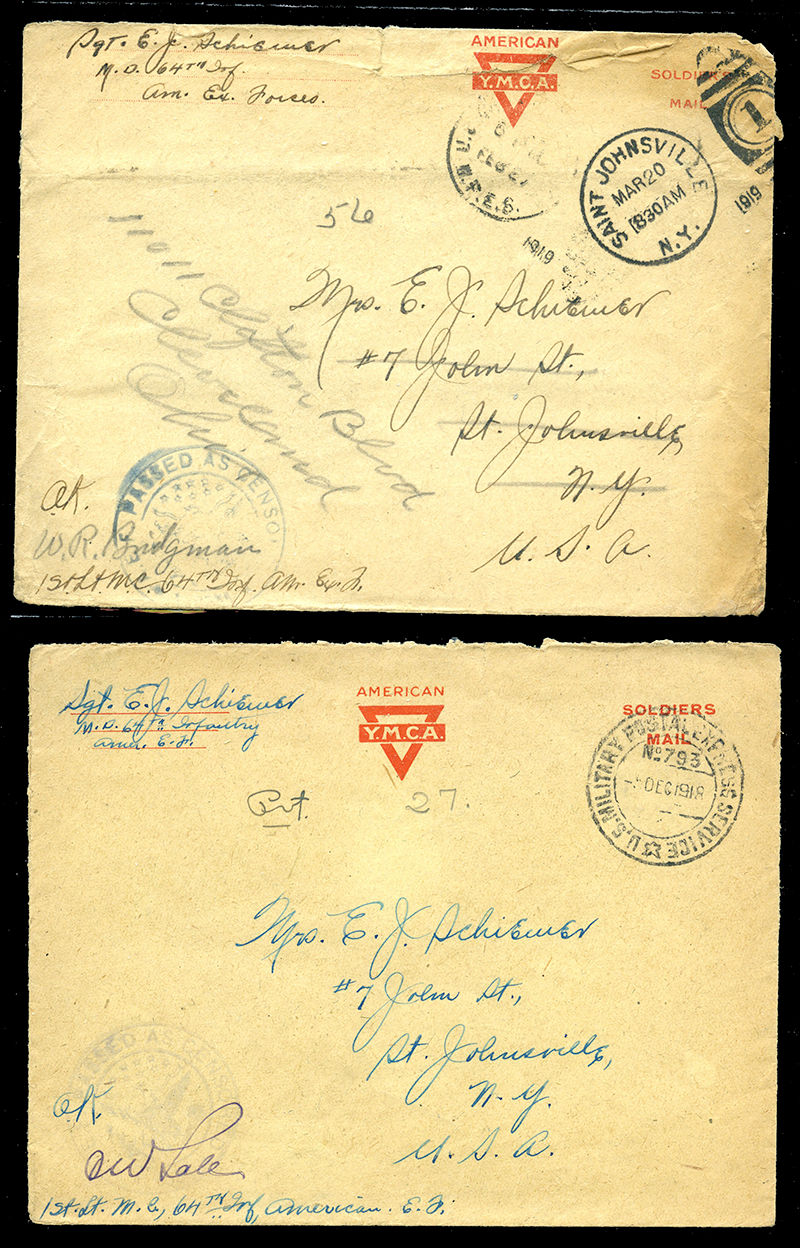 Sgt. E. J. Schiemer
M.D. 64TH Inf.
Am. Ex. Forces.
AMERICAN
Y.M.C.A.
SOLDIER'S
MAIL
1
1919
FEB 2
M.P.E.S.
1919
SAINT JOHNSVILLE
MAR 20
830AM
N.Y.
56
11011 Clifton Blvd
Cleveland
Ohio
Mrs. E. J. Schiemer
#7 John St.,
St. Johnsville,
N.Y.
U.S.A.
PASSED AS CENSO
O.K.
W. R. Bridgman
1st. Lt. M.C. 64TH Inf. Am. Ex. F.
Sgt. E. J. Schiemer
M.D. 64TH Infantry
Amer. E. F.
AMERICAN
Y.M.C.A.
SOLDIERS
MAIL
U.S. MILITARY POSTAL EXPRESS SERVICE
No. 793
DEC 1918
Pvt. 27.
Mrs. E. J. Schiemer
#7 John St.,
St. Johnsville,
N.Y.
U.S.A.
SSED AS
O.K.
1st. Lt. M.C., 64TH Inf, American. E. F.